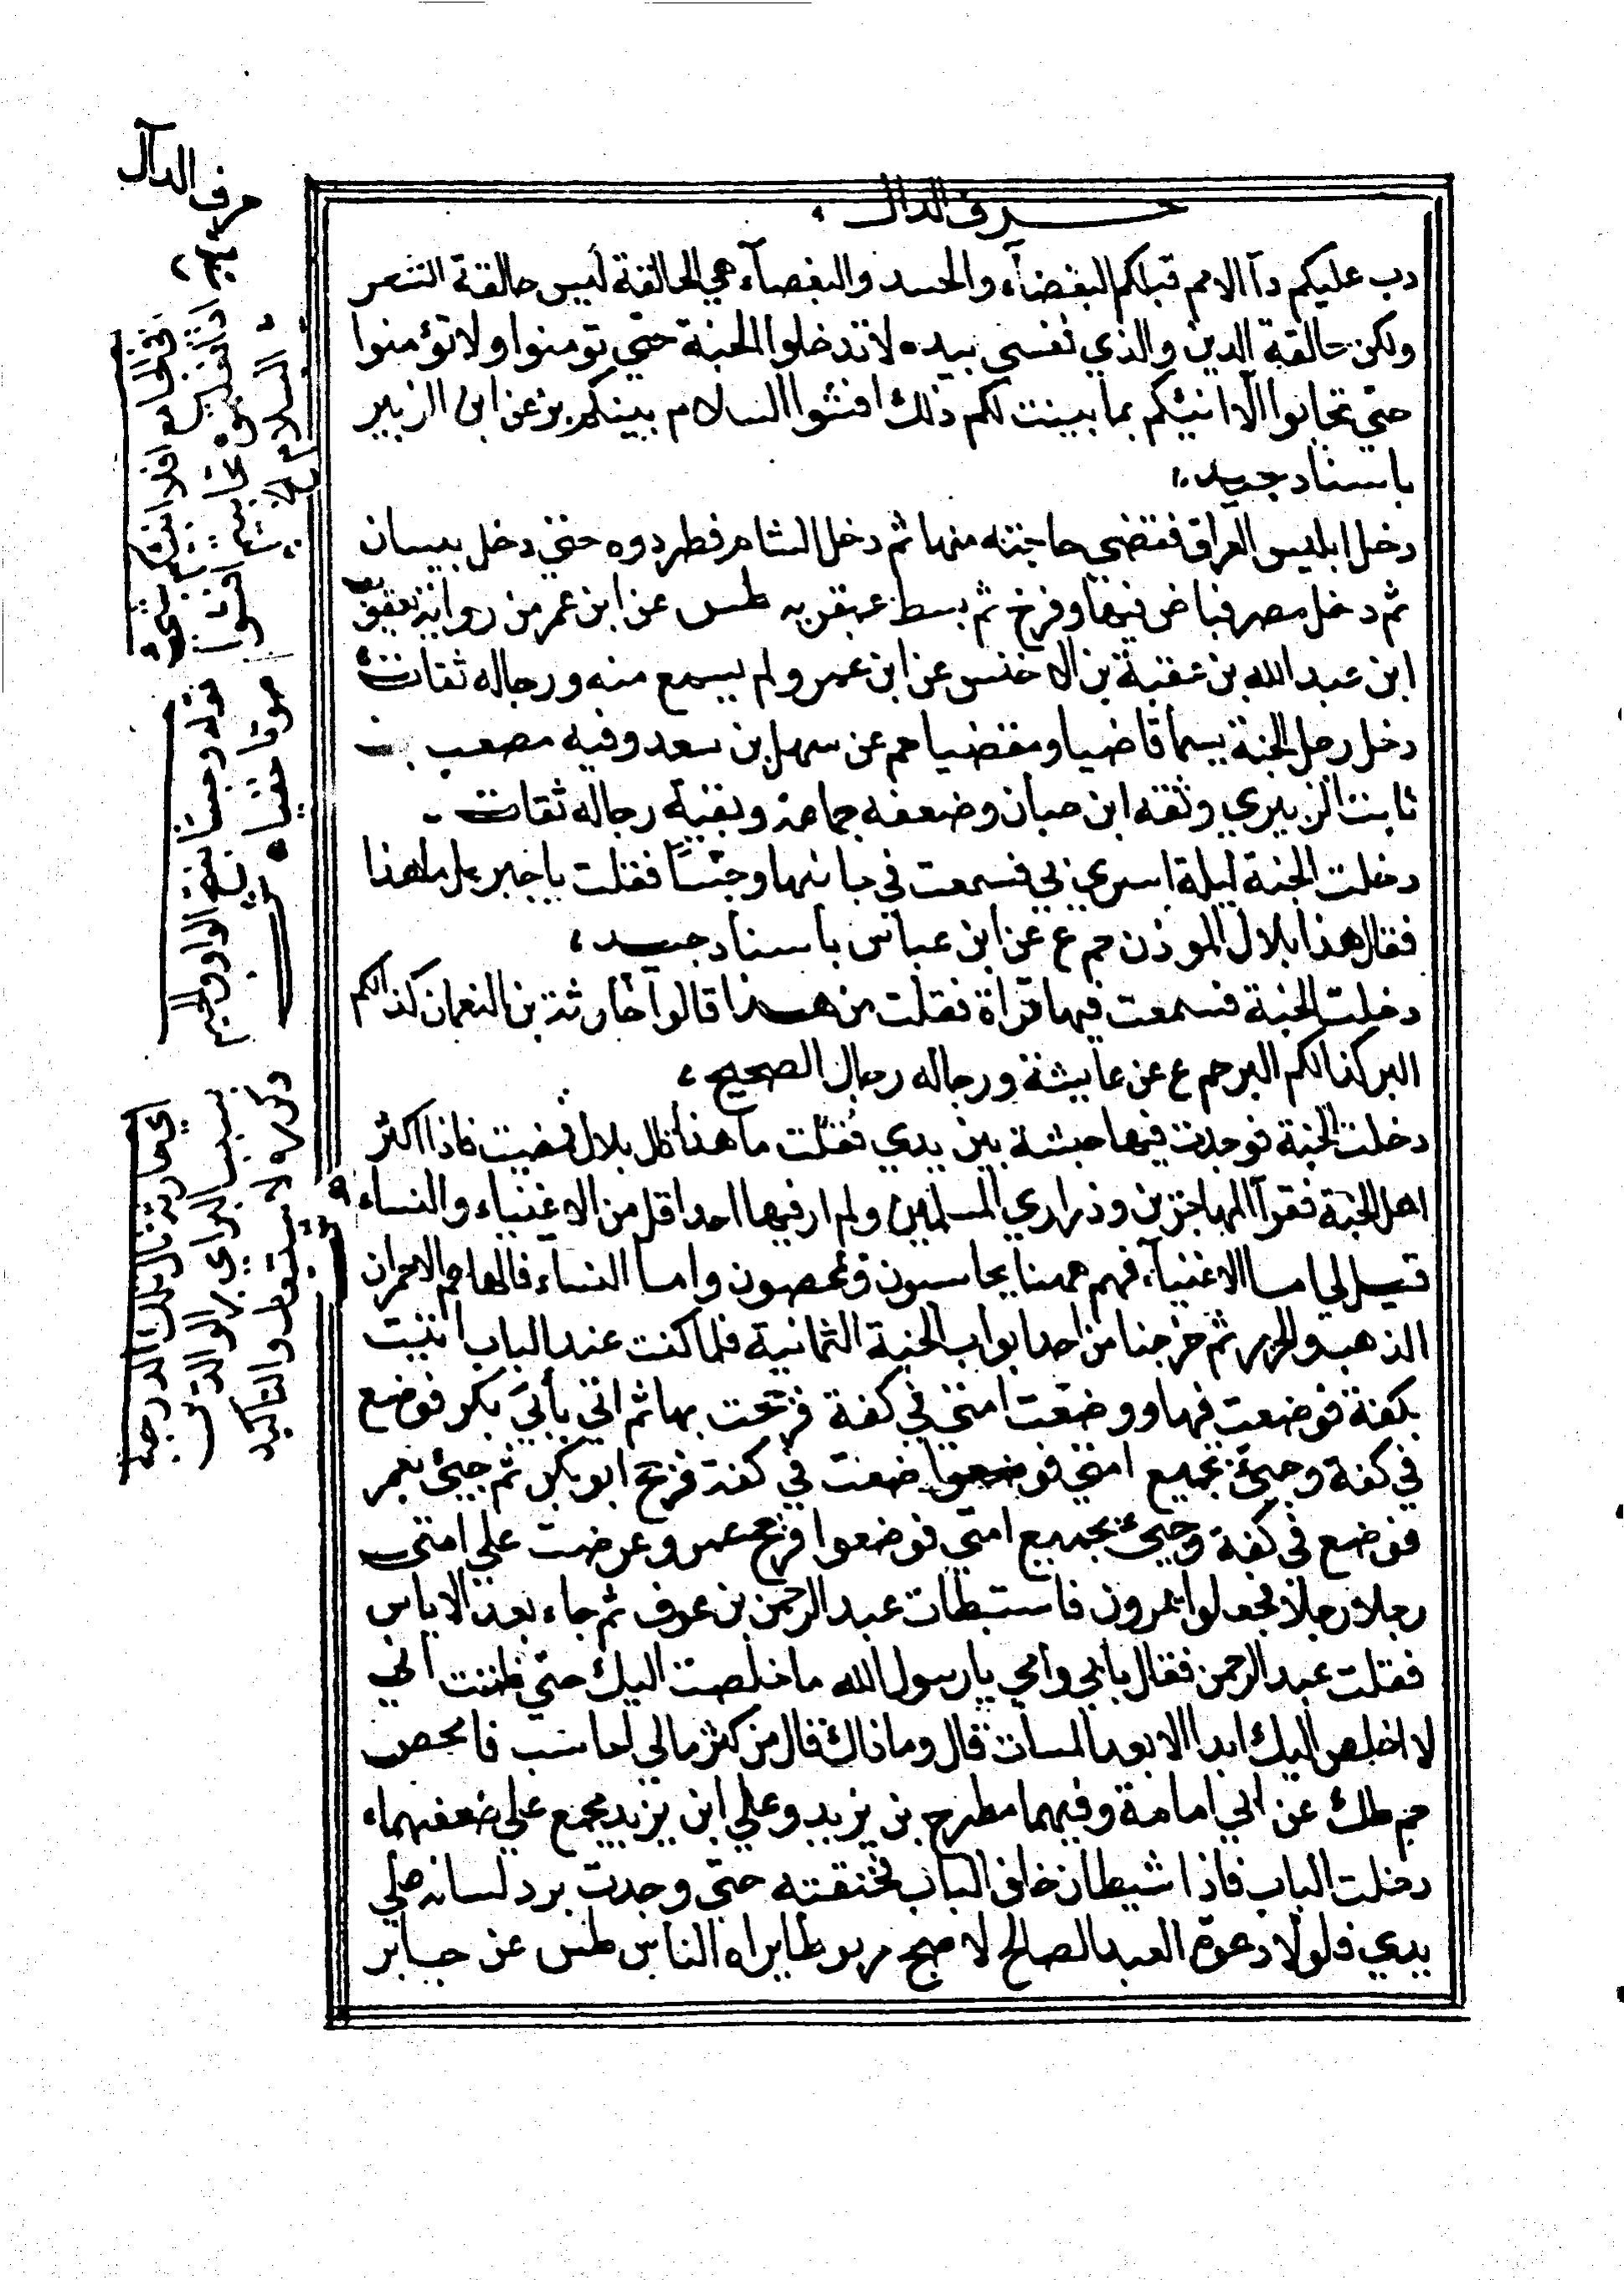 حرف الدال
دب عليكم دآ الامم قبلكم البغضآء والحسد والبغضآء هي الحالقة ليس حالقة الشعر
ولكن حالقة الدين والذي نفسي بيده لا تدخلوا الجنة حتي تومنوا ولا تؤمنوا
حتي تحابوا ألا انبئكم بما يبينت لكم ذلك افشوا السلام بينكم بز عن ابن الزبير
باسناد جيد
دخل ابليس العراق فقضي حاجته منها ثم دخل الشام فطردوه حتي دخل بيسان
ثم دخل مصر فباض فيها وفرخ ثم بسط عبقريه طس عن ابن عمر من رواية يعقوب
ابن عبد الله بن عقبة بن الاخنس عن ابن عمر ولم يسمع منه ورجاله ثقات
دخل رجل الجنة بسما قاضيا ومقضيا حم عن سهل بن سعد وفيه مصعب بن
ثابت الزبيري وثقه ابن حبان وضعفه جماعة وبقية رجاله ثقات
دخلت الجنة ليلة اسري بي فسمعت في جانبها وجسًا فقلت ياجبريل ما هذا
فقال هذا بلال الموذن حم ع عن ابن عباس باسناد جيد
دخلت الجنة فسمعت فيها قرآة فقلت من هذا قالوا حارثة بن النعمان كذالكم
البر كذالكم البر حم ع عن عايشة ورجاله رجال الصحيح
دخلت الجنة فوجدت فيها خشفة بين يدي فقلت ما هذا قال بلال فمضيت فاذا اكثر
اهل الجنة فقرآ المهاجرين وذراري المسلمين ولم ار فيها احدا اقل من الاغنياء والنساء
قيل لي اما الاغنيآء فهم ههنا يحاسبون ويمحصون واما النساء فالهاهم الاحمران
الذهب والحرير ثم خرجنا من احد ابواب الجنة الثمانية فلما كنت عند الباب اتيت
بكفة فوضعت فيها ووضعت امتي في كفة فرجحت بها ثم اتي بأبي بكر فوضع
في كفة وجيئ بجميع امتي فوضعت في كفة فرجح ابو بكر ثم جيئ بعمر
فوضع في كفة وجيئ بجميع امتي فوضعوا فرجح عمر وعرضت علي امتي
رجلا رجلا فجعلوا يمرون فاستبطات عبد الرحمن بن عوف ثم جاء بعد الاياس
فقلت عبد الرحمن فقال بابي وامي يارسول الله ما خلصت اليك حتي ظننت اني
لا اخلص اليك ابدا الا بعد المسات قال وما ذاك قال من كثرة مالي احاسب فامحص
حم طك عن ابي امامة وفيهما مطرح بن يزيد وعلي ابن يزيد مجمع علي ضعفهما
دخلت الباب فاذا شيطان خلف الباب فخنقته حتي وجدت برد لسانه علي
يدي فلولا دعوة العبد الصالح لاصبح مربوطا يراه الناس طس عن جابر
حرف الدال
قوله وجسا بفتح الواو والجيم
صوتا خفيا